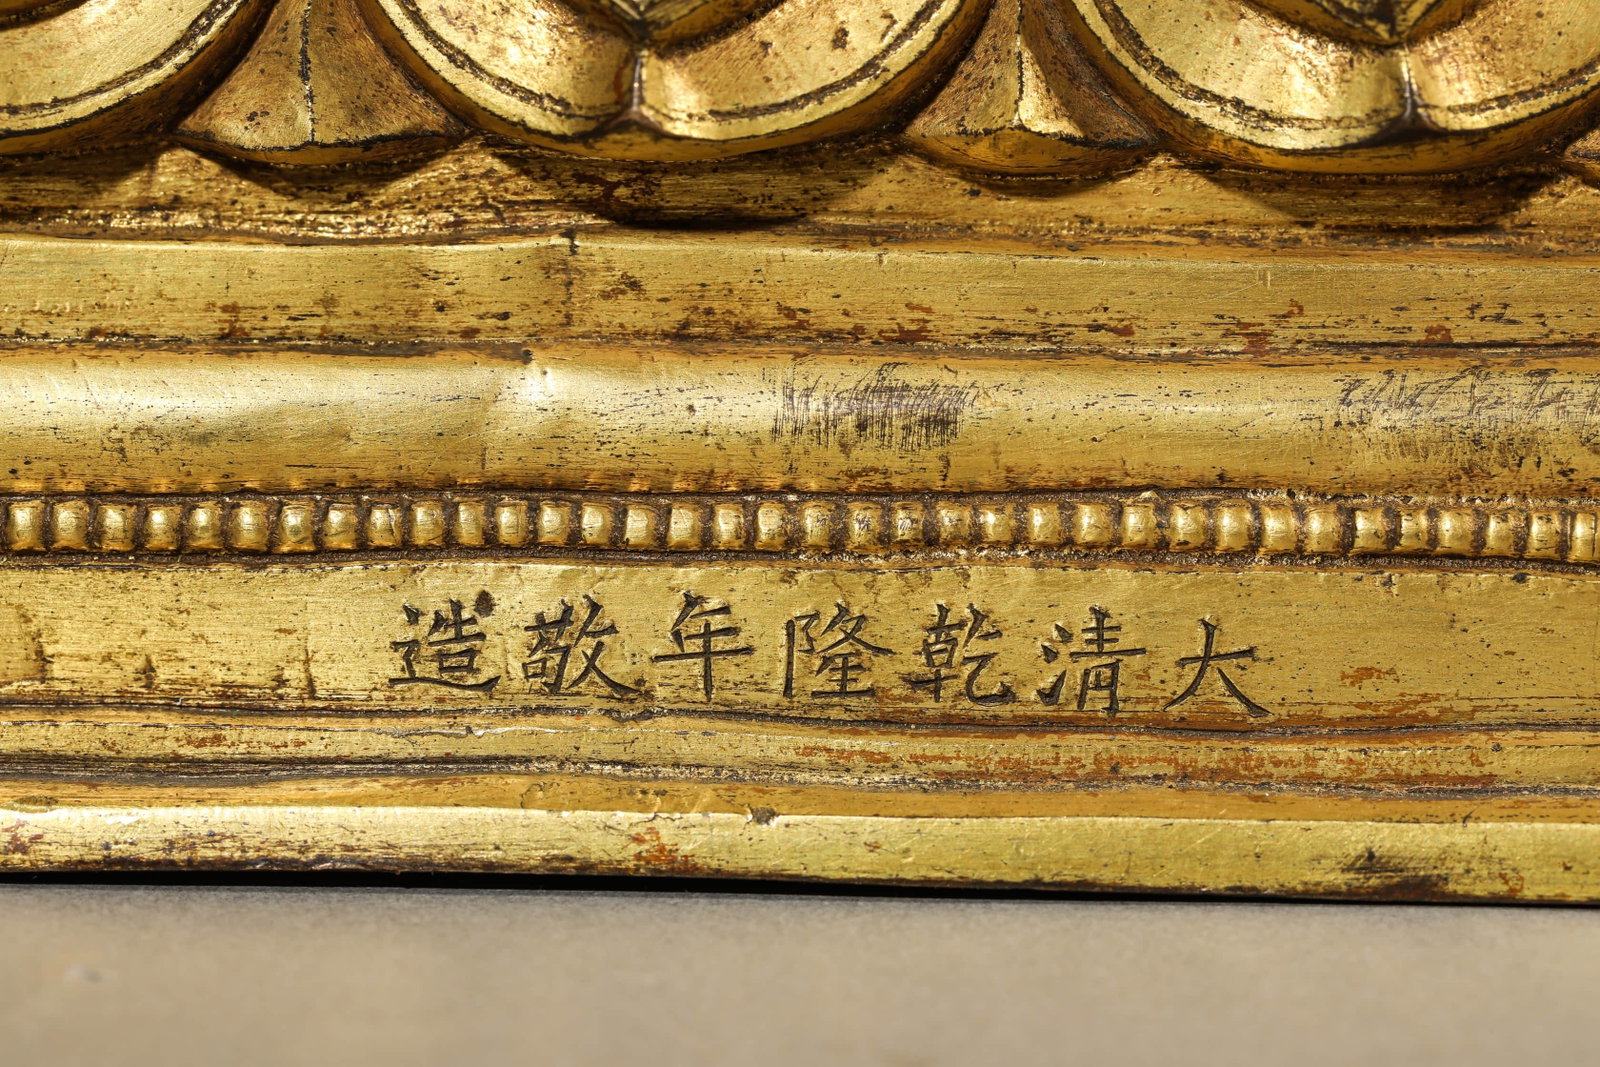 大清乾隆年敬造